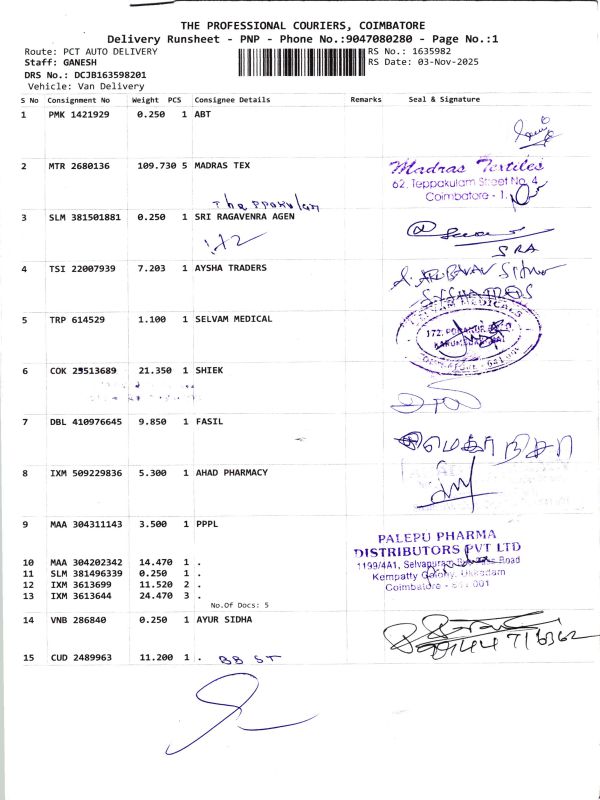 THE PROFESSIONAL COURIERS, COIMBATORE
Delivery Runsheet - PNP - Phone No.:9047080280 - Page No.:1
Route: PCT AUTO DELIVERY RS No.: 1635982
Staff: GANESH RS Date: 03-Nov-2025
DRS No.: DCJB163598201
Vehicle: Van Delivery
S No Consignment No Weight PCS Consignee Details Remarks Seal & Signature
1 PMK 1421929 0.250 1 ABT
2 MTR 2680136 109.730 5 MADRAS TEX
Madras Textiles
62, Teppakulam Street No. 4
Coimbatore - 1.
Theppakulam
3 SLM 381501881 0.250 1 SRI RAGAVENRA AGEN
SRA
4 TSI 22007939 7.203 1 AYSHA TRADERS
5 TRP 614529 1.100 1 SELVAM MEDICAL
SELVAM MEDICALS
6 COK 23513689 21.350 1 SHIEK
7 DBL 410976645 9.850 1 FASIL
8 IXM 509229836 5.300 1 AHAD PHARMACY
9 MAA 304311143 3.500 1 PPPL
PALEPU PHARMA
DISTRIBUTORS PVT LTD
1199/4A1, Selvapuram Road
Kempatty Colony, Ukkadam
Coimbatore - 641 001
10 MAA 304202342 14.470 1 .
11 SLM 381496339 0.250 1 .
12 IXM 3613699 11.520 2 .
13 IXM 3613644 24.470 3 .
No.Of Docs: 5
14 VNB 286840 0.250 1 AYUR SIDHA
15 CUD 2489963 11.200 1 . BB ST